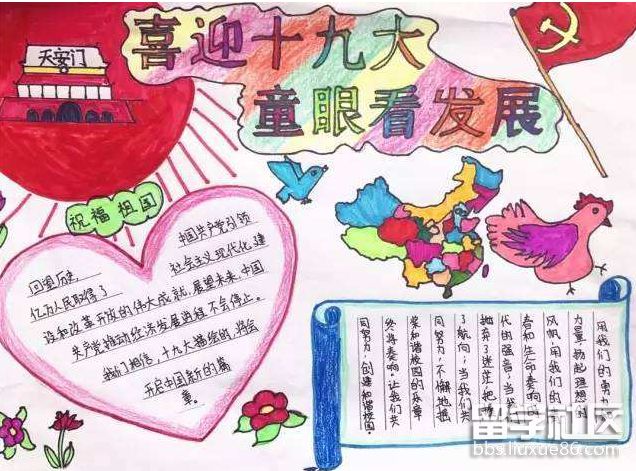 喜迎十九大
童眼看发展
天安门
祝福祖国
回望历史,中国共产党引领
亿万人民取得了社会主义现代化建
设和改革开放的伟大成就,展望未来,中国
共产党推动经济发展进程不会停止。
我们相信,十九大描绘的,将会
开启中国新的篇
章。
用我们的勇
力量,扬起理想的
风帆,用我们的
春和生命奏响时
代的强音,当我
抛弃了迷茫,把握
了航向,当我们共
同努力,不懈地摇
桨和谐校园的乐章
终将奏响。让我们共
同努力,创建和谐校园。
留学社区
bbs.liuxue86.com